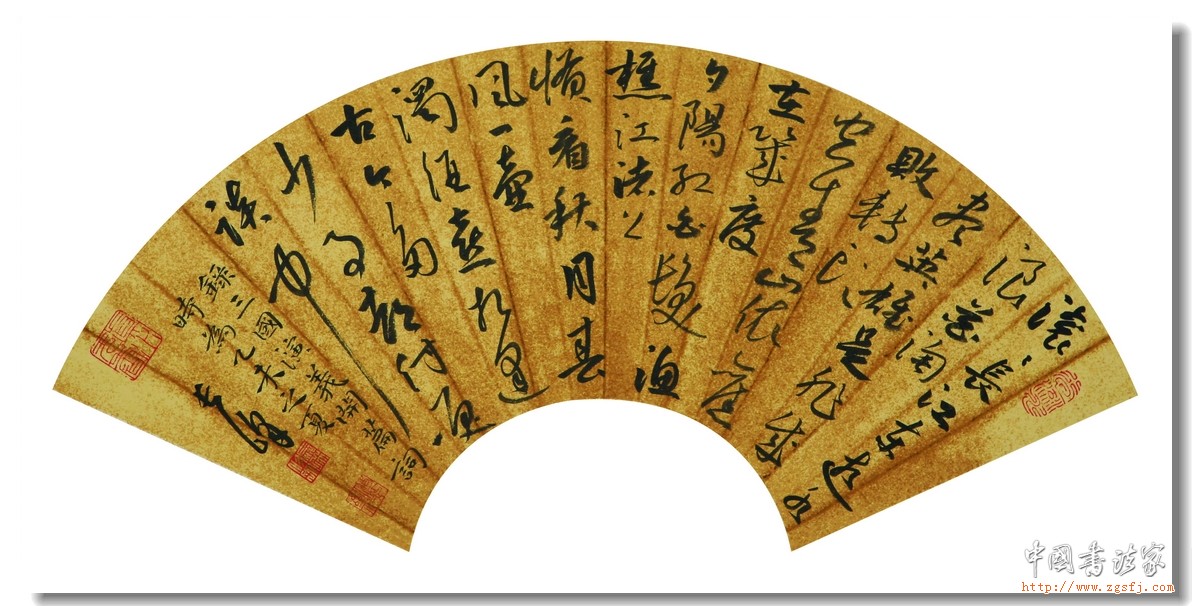 滚〻長江东逝水
浪花淘
尽英雄是非成
败转头
空青山依舊
在幾度
夕陽红白髮渔
樵江渚上
惯看秋月春
風一壺
濁酒喜相逢
古今多
少事都付笑
談中
錄三國演義開篇詞
時為乙未之夏
中國书法家
http://www.zgsfj.com